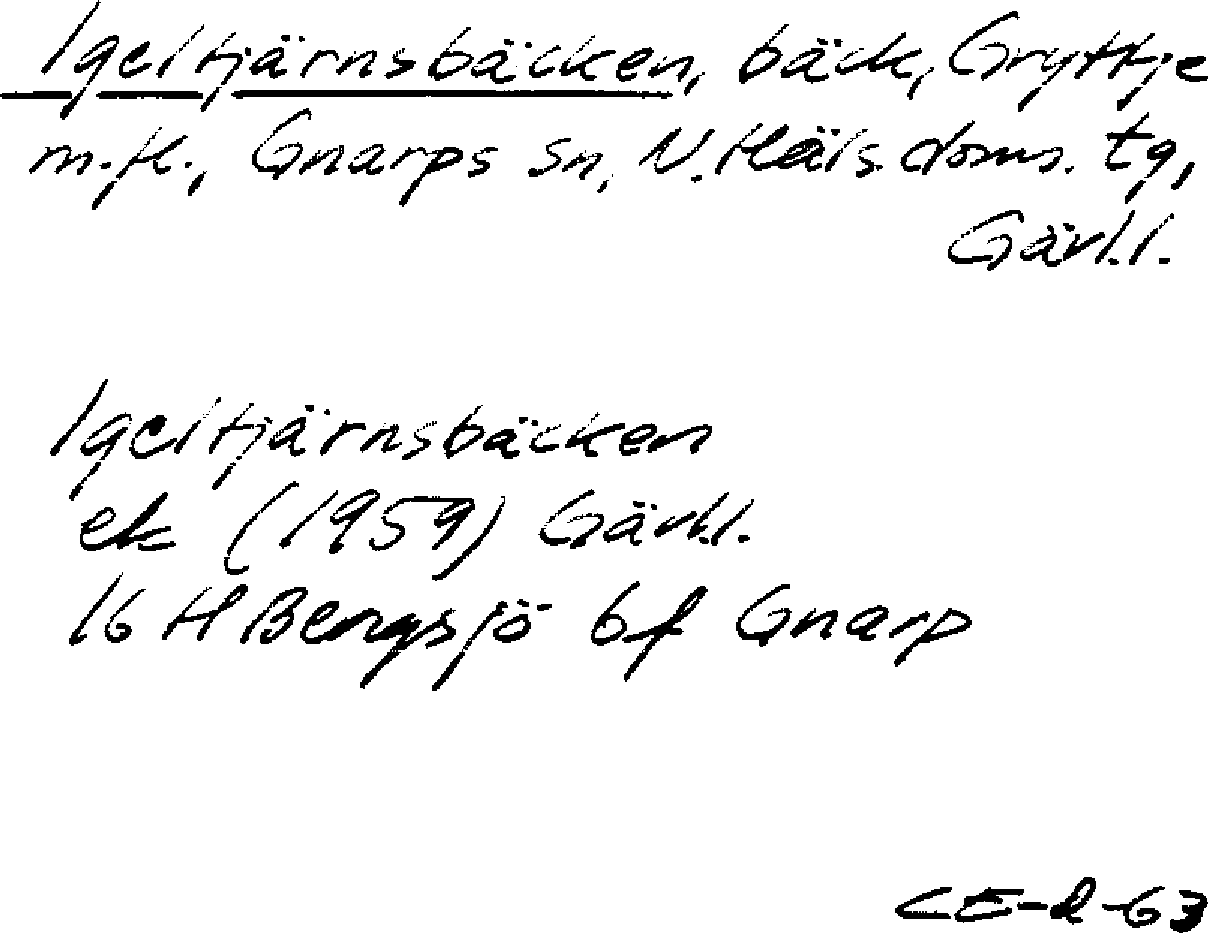 Igeltjärnsbäcken, bäck, Gryttje
m.fl., Gnarps sn, N.Häls. doms. tg,
Gävl.l.
Igeltjärnsbäcken
ek (1959) Gävl.l.
16 H Bergsjö 6f Gnarp
CE-R-63